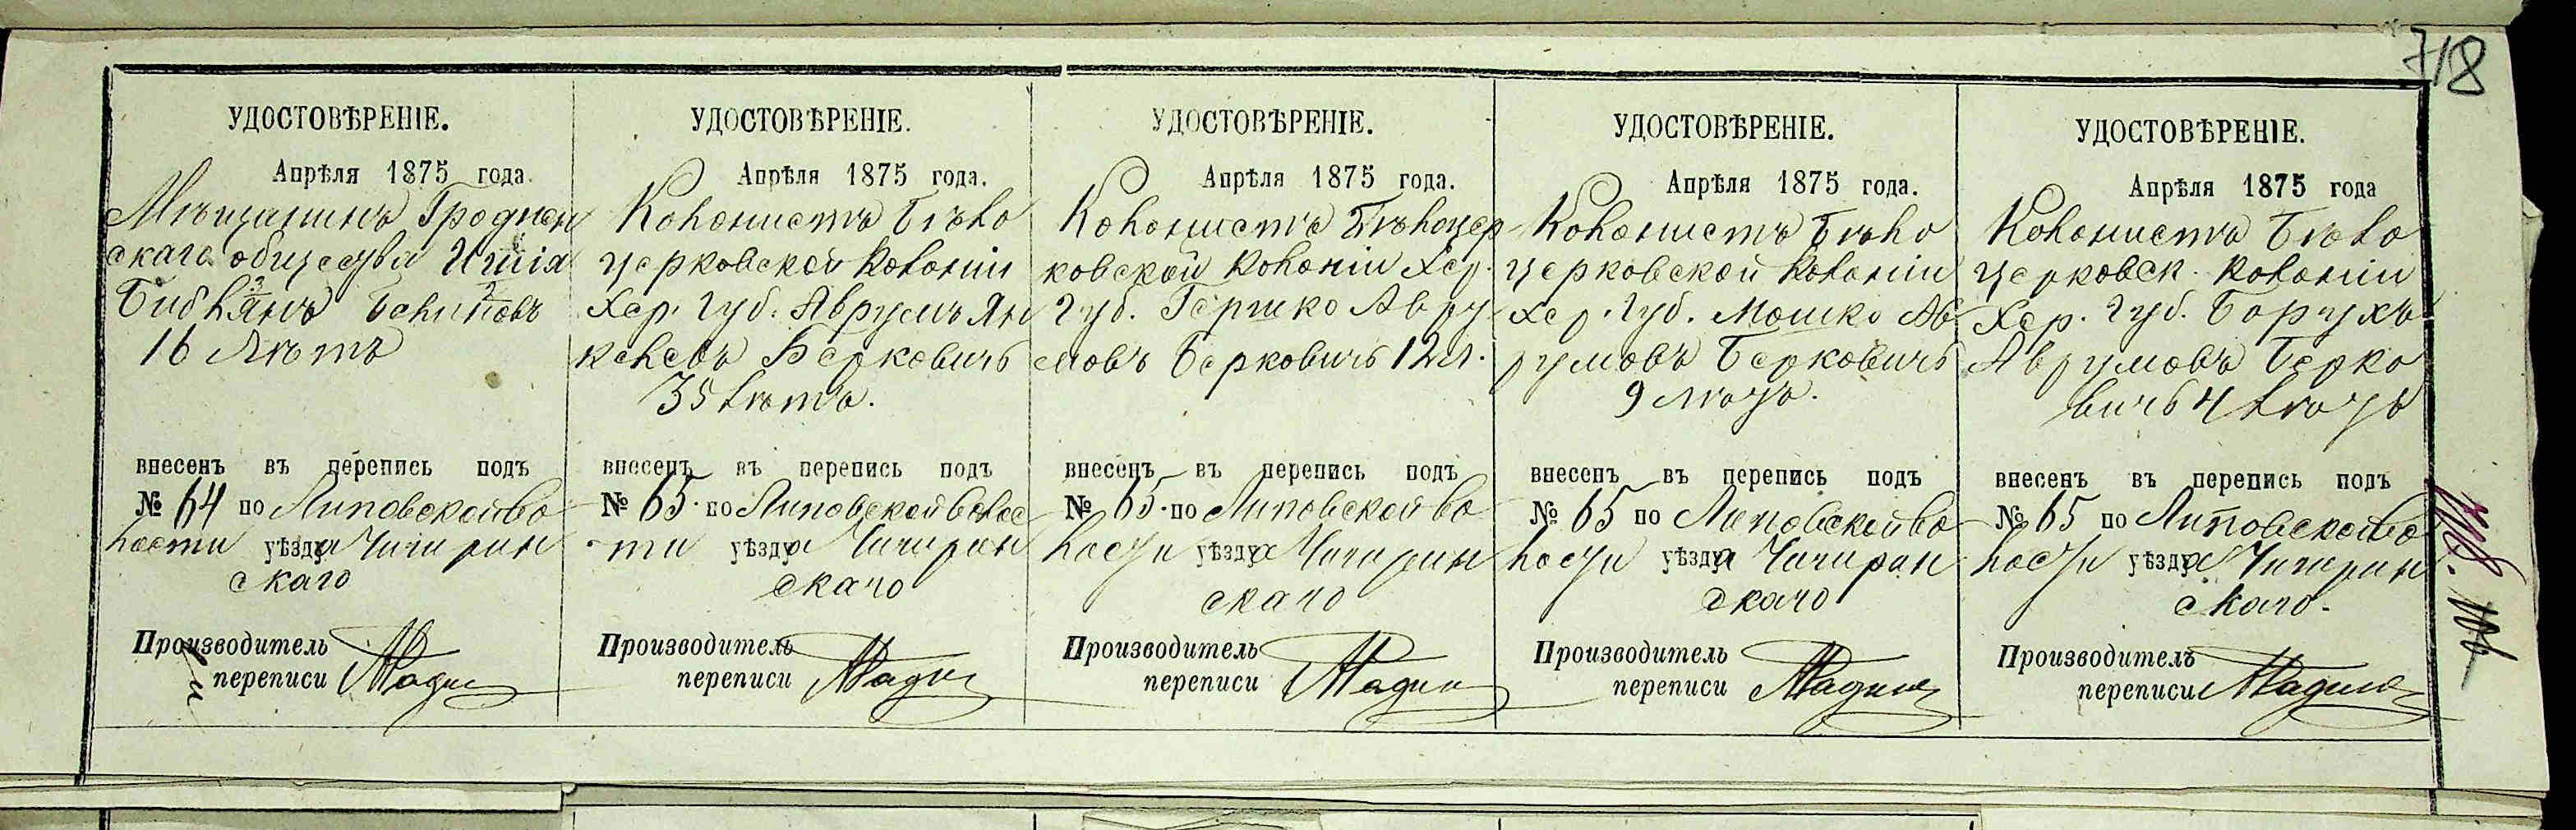 718
УДОСТОВѢРЕНІЕ.
Апрѣля 1875 года.
Мѣщанинъ Гроднен
скаго общества
16 Лѣтъ
внесенъ въ перепись подъ
№ 64 по Липовской во
лости уѣзда Чигирин
скаго
Производитель
переписи
УДОСТОВѢРЕНІЕ.
Апрѣля 1875 года.
Колонистъ Бѣло
церковской колоніи
Хер. губ. Аврумъ Ян
келевъ Берковичъ
35 лѣтъ.
внесенъ въ перепись подъ
№ 65. по Липовской волос
ти уѣзда Чигирин
скаго
Производитель
переписи
УДОСТОВѢРЕНІЕ.
Апрѣля 1875 года.
Колонистъ Бѣлоцер
ковской колоніи Хер.
губ. Гершко Авру
мовъ Берковичъ 12 л.
внесенъ въ перепись подъ
№ 65. по Липовской во
лости уѣзда Чигирин
скаго
Производитель
переписи
УДОСТОВѢРЕНІЕ.
Апрѣля 1875 года.
Колонистъ Бѣло
церковской колоніи
Хер. губ. Мошко Ав
румовъ Берковичъ
9 лѣтъ.
внесенъ въ перепись подъ
№ 65 по Липовской во
лости уѣзда Чигирин
скаго
Производитель
переписи
УДОСТОВѢРЕНІЕ.
Апрѣля 1875 года
Колонистъ Бѣло
церковск. колоніи
Хер. губ. Борухъ
Аврумовъ Берко
вичъ 4 лѣтъ
внесенъ въ перепись подъ
№ 65 по Липовской во
лости уѣзда Чигирин
скаго.
Производитель
переписи